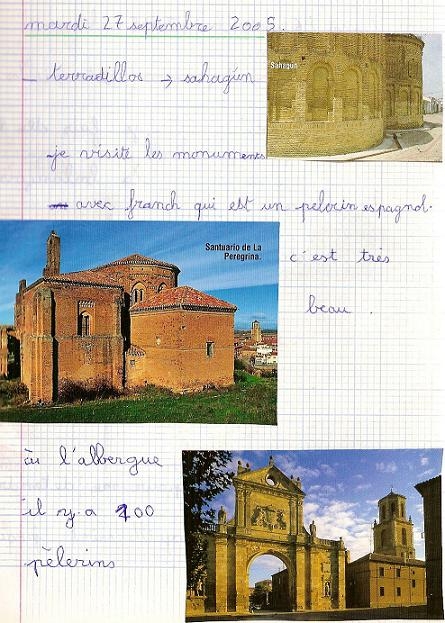 mardi 27 septembre 2005.
_ terradillos → sahagún
Sahagún
- je visite les monuments
avec franch qui est un pelerin espagnol.
Santuario de La
Peregrina.
c'est très
beau.
àu l'albergue
il y a 100
pèlerins